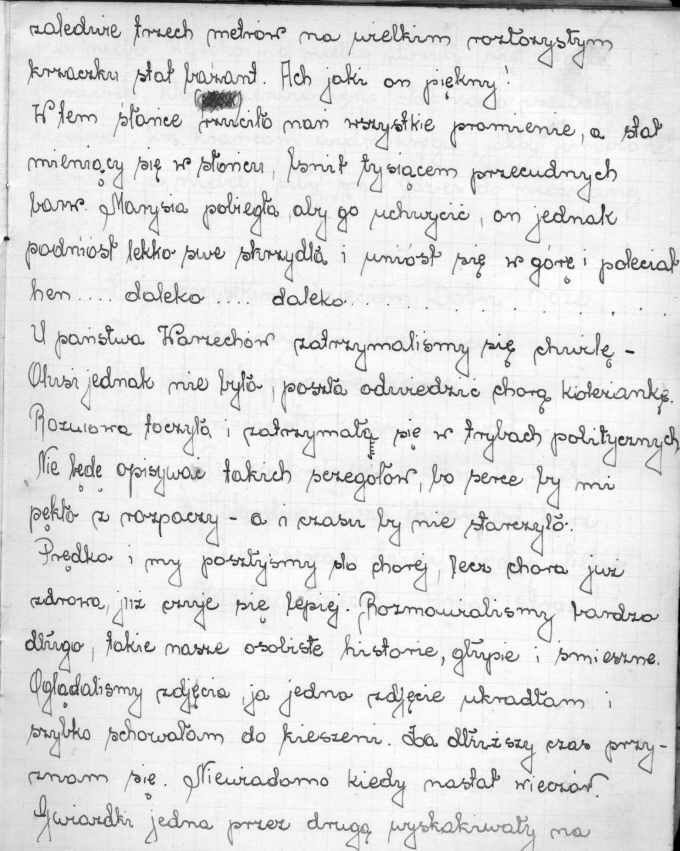 zaledwie trzech metrów na wielkim rozłożystym
krzaczku stał bażant. Ach jaki on piękny!
Wtem słońce rzuciło nań wszystkie promienie, a stał
mieniący się w słońcu, lśnił tysiącem przecudnych
barw. Marysia pobiegła, aby go uchwycić, on jednak
podniósł lekko swe skrzydła i uniósł się w górę i poleciał
hen.... daleko.... daleko..............
U państwa Warzechów zatrzymaliśmy się chwilę –
Olusi jednak nie było, poszła odwiedzić chorą koleżankę.
Rozmowa toczyła i zatrzymała się w trybach politycznych
Nie będę opisywać takich szczegółów, bo serce by mi
pękło z rozpaczy – a i czasu by nie starczyło.
Prędko i my poszłyśmy do chorej, lecz chora już
zdrowa, już czuje się lepiej. Rozmawialiśmy bardzo
długo, takie nasze osobiste historie, głupie i śmieszne.
Oglądaliśmy zdjęcia, ja jedno zdjęcie ukradłam i
szybko schowałam do kieszeni. Za dłuższy czas przy-
znam się. Niewiadomo kiedy nastał wieczór.
Gwiazdki jedna przez drugą wyskakiwały na